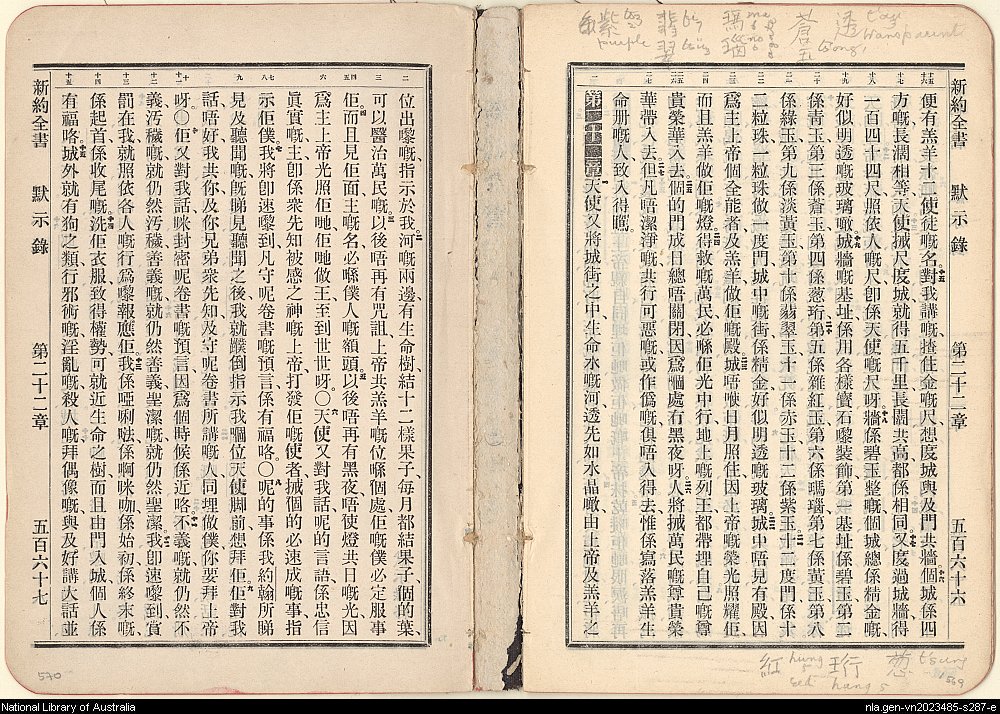 透 tau transparent
蒼玉 tsong
瑪瑙
翡翠
紫 purple
新約全書 默示錄 第二十二章 五百六十六
便有羔羊十二使徒嘅名、對我講嘅揸住金嘅尺、想度城與及門共牆、個城係四
方嘅、長濶相等、天使搣尺度城、就得五千里、長闊共高都係相同、又度過城牆、得
一百四十四尺、照依人嘅尺、卽係天使嘅尺呀、牆係碧玉整嘅、個城總係精金嘅、
好似明透嘅玻璃噉、城牆嘅基址、係用各樣寶石嚟裝飾、第一基址係碧玉、第二
係青玉、第三係蒼玉、第四係葱珩、第五係雜紅玉、第六係瑪瑙、第七係黃玉、第八
係綠玉、第九係淡黃玉、第十係翡翠玉、十一係赤玉、十二係紫玉、十二度門係十
二粒珠、一粒珠做一度門、城中嘅街係精金、好似明透嘅玻璃、城中唔見有殿、因
爲主上帝個全能者、及羔羊做佢嘅殿、城唔使日月照住、因上帝嘅榮光照耀佢、
而且羔羊做佢嘅燈、得救嘅萬民、必喺佢光中行、地上嘅列王、都帶埋自己嘅尊
貴榮華入去、個的門成日總唔關閉、因爲嗰處冇黑夜呀、人將搣萬民嘅尊貴榮
華帶入去、但凡唔潔淨嘅、共行可惡嘅、或作僞嘅、俱唔入得去、惟係寫落羔羊生
命册嘅人、致入得
第二十二章 天使又將城街之中生命水嘅河、透先如水晶噉、由上帝及羔羊之
葱 tsung
珩 hang
紅 hung red
569
位出嚟嘅、指示於我、河嘅兩邊、有生命樹、結十二樣果子、每月都結果子、個的葉、
可以醫治萬民嘅、以後唔再有咒詛、上帝共羔羊嘅位、喺個處、佢嘅僕必定服事
佢、而且見佢面、主嘅名必喺僕人嘅額頭、以後唔再有黑夜、唔使燈共日嘅光、因
爲主上帝光照佢哋、佢哋做王至到世世呀、〇天使又對我話、呢的言語係忠信
眞實嘅、主卽係衆先知被感之神嘅上帝、打發佢嘅使者、搣個的必速成嘅事指
示佢僕、我將卽速嚟到、凡守呢卷書嘅預言係有福咯、〇呢的事係我約翰所睇
見及聽聞嘅、旣睇見聽聞之後、我就蹼倒指示我嗰位天使脚前、想拜佢、佢對我
話、唔好、我共你、及你兄弟衆先知、及守呢卷書所講嘅人、同埋做僕、你要拜上帝
呀、〇佢又對我話、咪封密呢卷書嘅預言、因爲個時候係近咯、不義嘅就仍然不
義、汚穢嘅就仍然汚穢、善義嘅就仍然善義、聖潔嘅就仍然聖潔、我卽速嚟到、賞
罰在我、就照依各人嘅行爲嚟報應佢、我係啞唎㕸、係啊咪咖、係始初、係終末嘅、
係起首、係收尾嘅、洗佢衣服致得權勢、可就近生命之樹、而且由門入城、個人係
有福咯、城外就有狗之類、行邪術嘅、淫亂嘅、殺人嘅、拜偶像嘅、與及好講大話並
新約全書 默示錄 第二十二章 五百六十七
570
National Library of Australia
nla.gen-vn2023485-s287-e